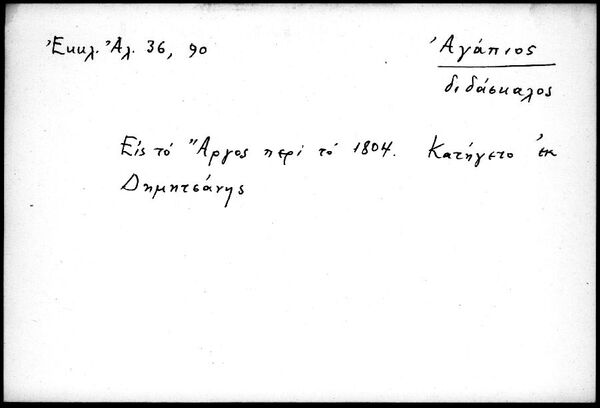 Ἐκκλ. Ἀλ. 36, 90
Ἀγάπιος
διδάσκαλος
Εἰς τό Ἄργος περί τό 1804. Κατήγετο ἐκ
Δημητσάνης